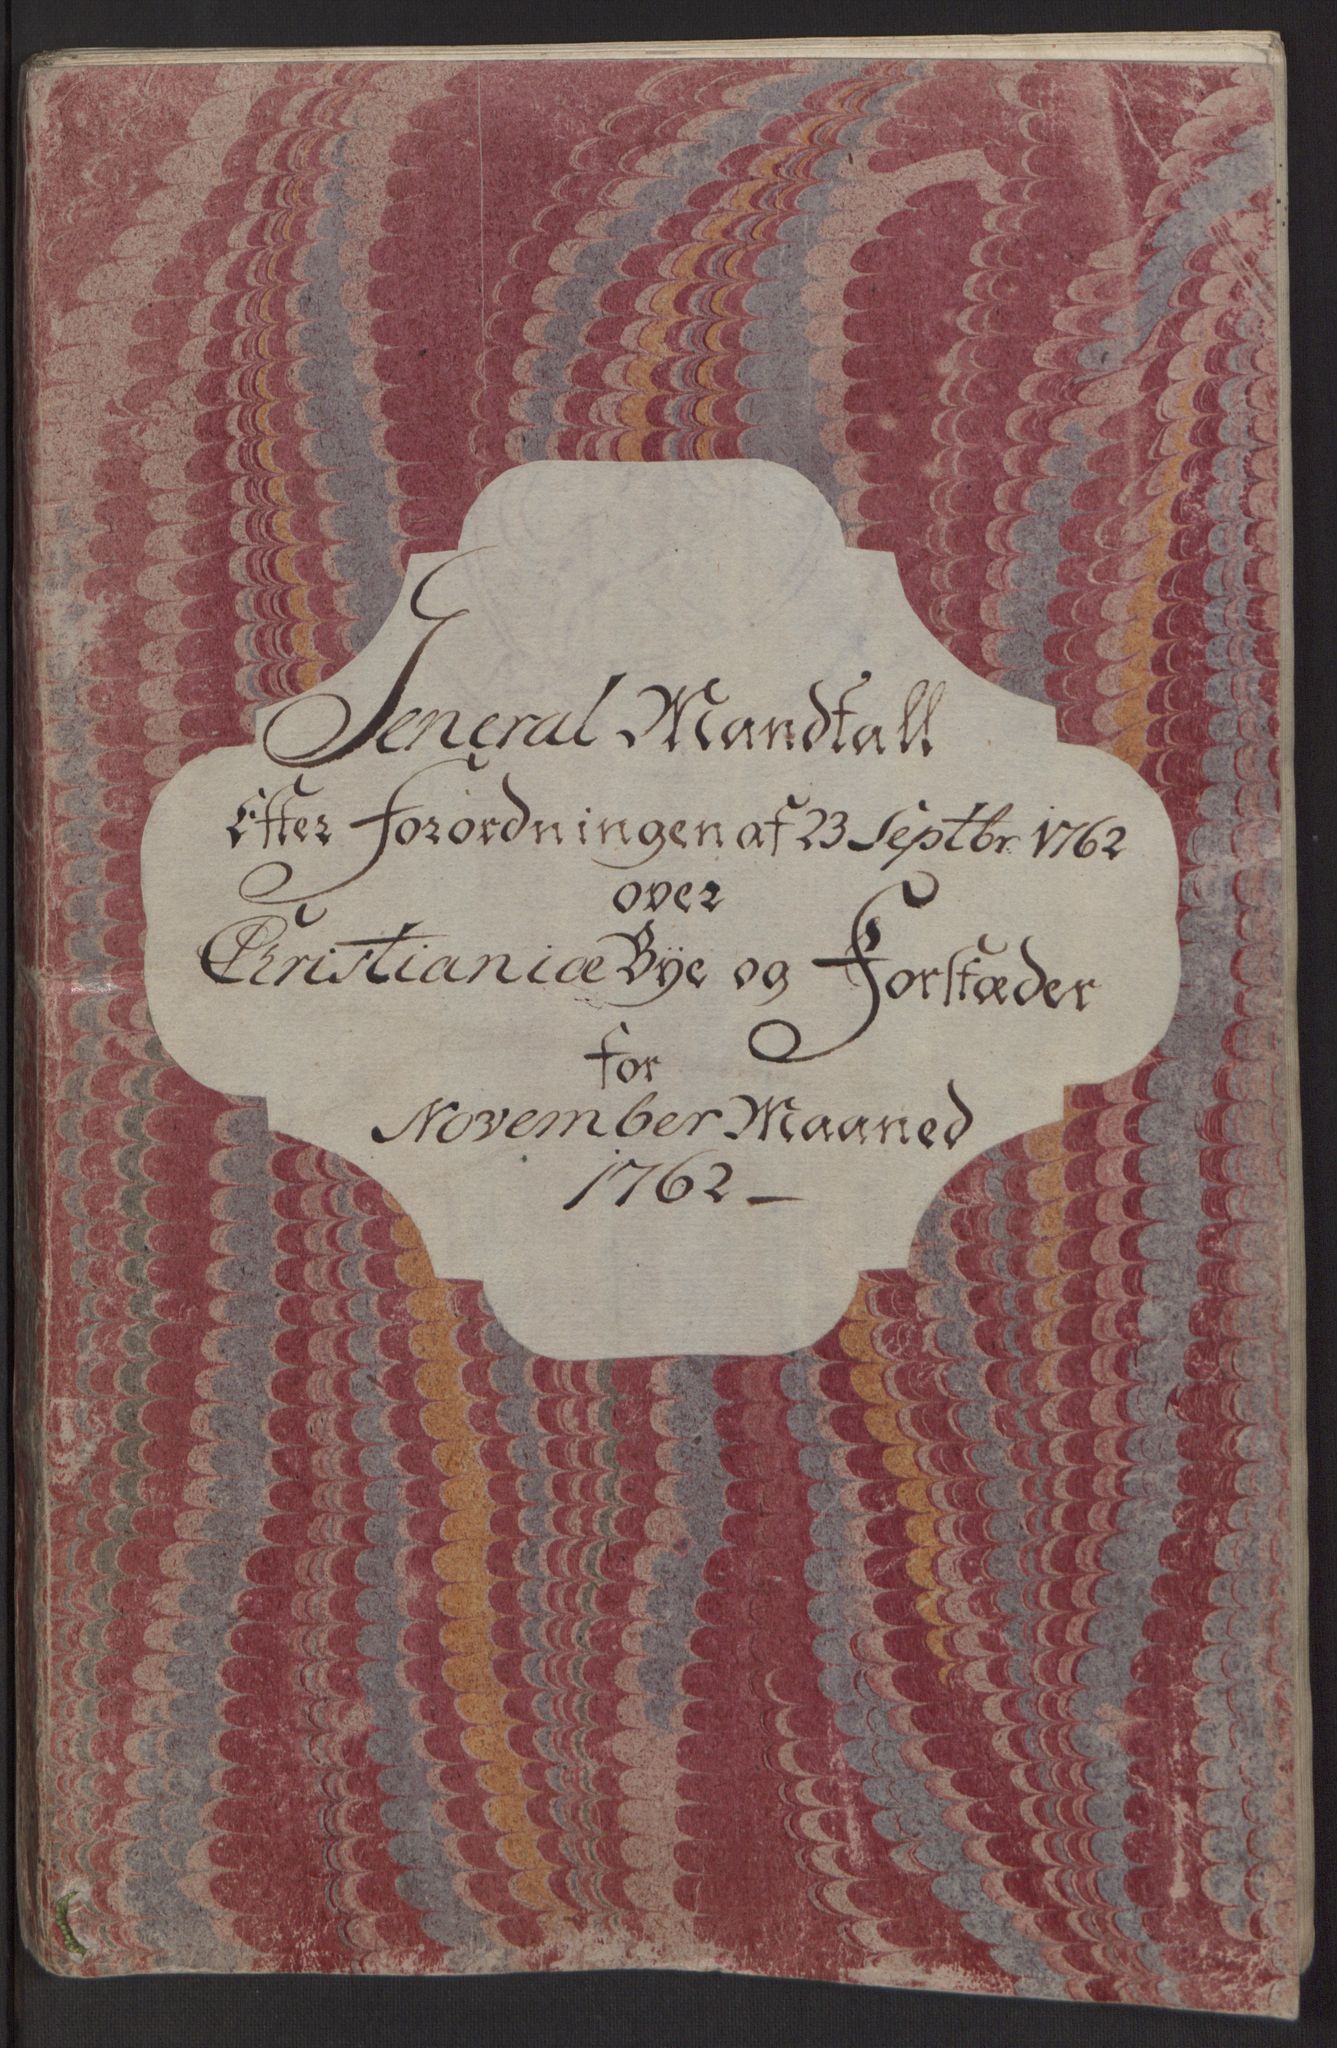 General Mandtall
Efter Forordningen af 23 Septbr. 1762
over
Christianiæ Bye og Forstæder
for
November Maaned
1762 —